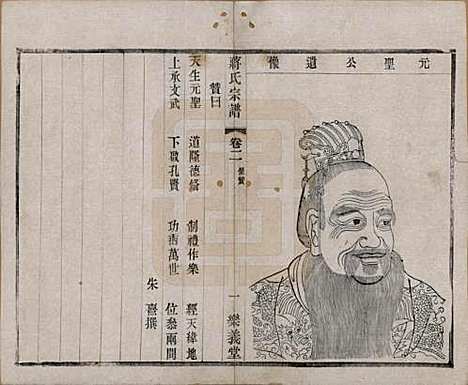 元聖公遺像
蔣氏宗譜 卷二 像贊 一 樂義堂
贊曰
天生元聖 道隆德綸 制禮作樂 經天緯地
上承文武 下啟孔賢 功甫萬世 位叅兩間
朱熹撰